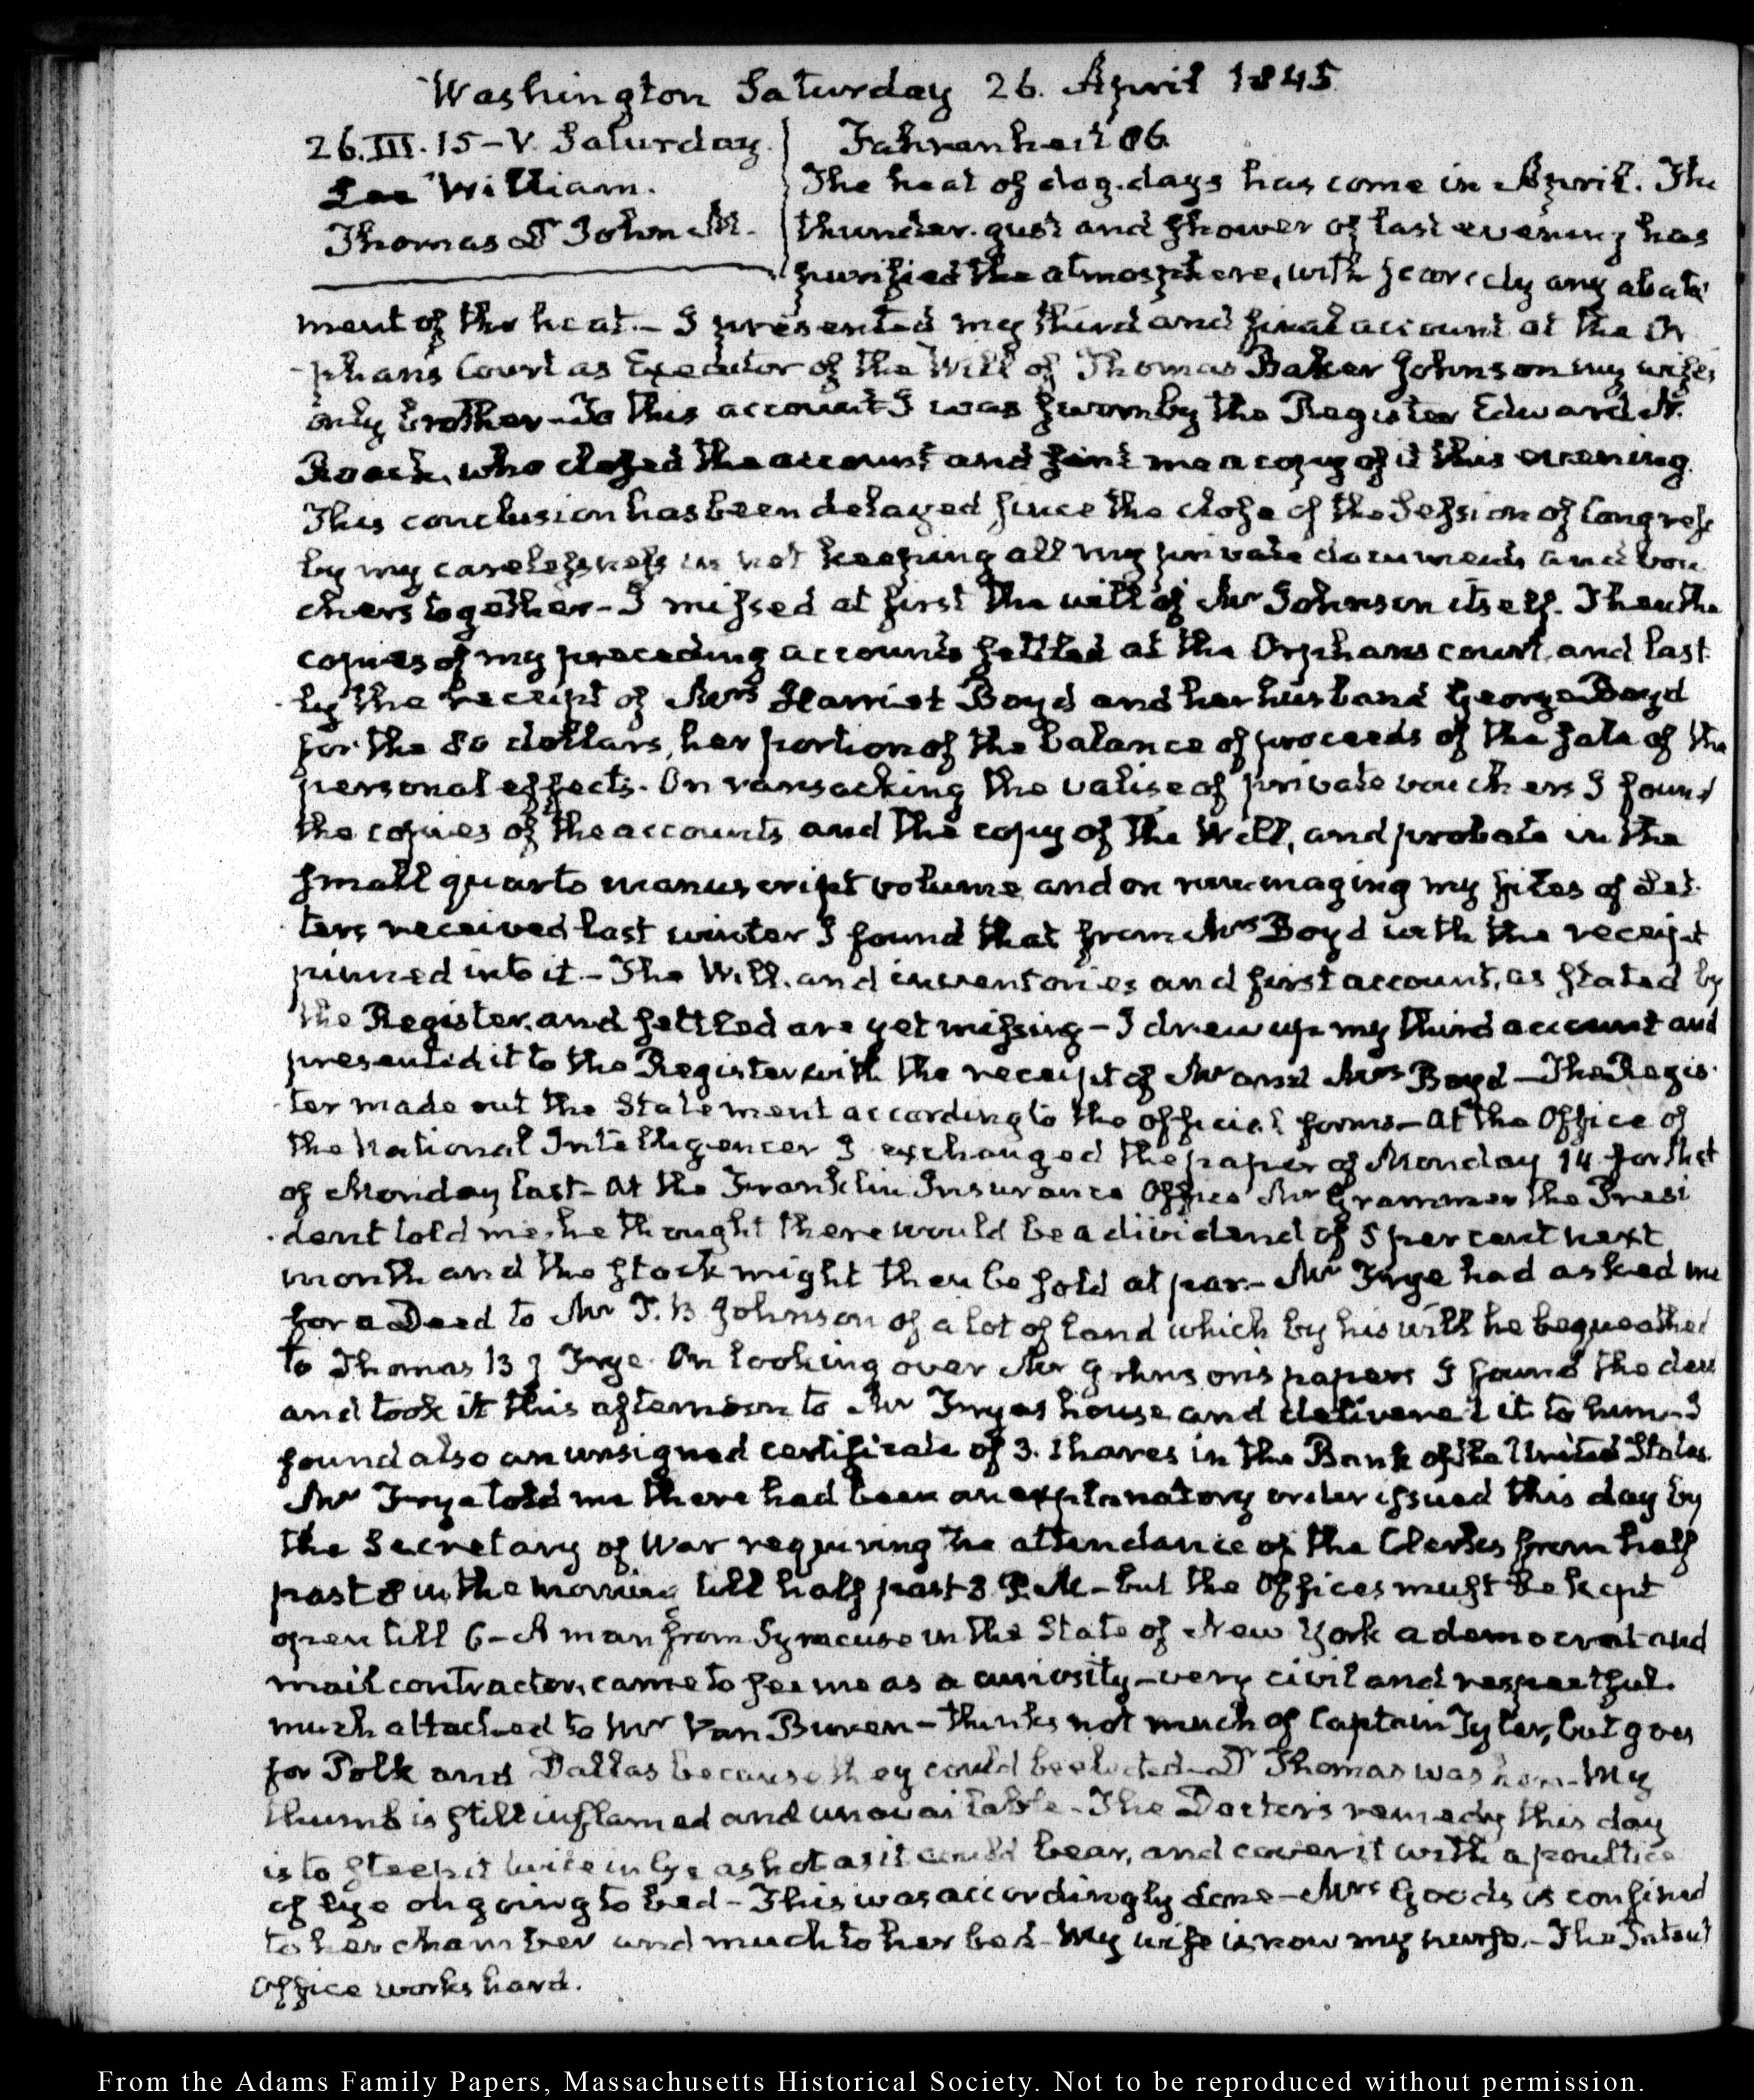 Washington Saturday 26. April 1845
26. III. 15 - V. Saturday. Fahrenheit 86
Lee William. The heat of dog-days has come in April. The
Thomas Dr John M. thunder-gust and shower of last evening has
purified the atmosphere, with scarcely any abate
ment of the heat.- I presented my third and final account at the Or
-phans Court as Executor of the Will of Thomas Baker Johnson my wifes
only brother - To this account I was sworn by the Register Edward N.
Roach, who closed the account and sent me a copy of it this evening.
This conclusion has been delayed since the close of the Session of Congress
by my carelessness in not keeping all my private documents and vou
chers together - I missed at first the will of Mr Johnson itself. Then the
copies of my preceding accounts settled at the Orphans court, and last
-ly the receipt of Mrs Harriet Boyd and her husband George Boyd
for the 80 dollars, her portion of the balance of proceeds of the sale of the
personal effects. On ransacking the valise of private vouchers I found
the copies of the accounts and the copy of the Will, and probate in the
small quarto manuscript volume and on rummaging my files of Let-
-ters received last winter I found that from Mrs Boyd with the receipt
pinned into it - The Will, and inventories and first account, as stated by
the Register, and settled are yet missing - I drew up my third account and
presented it to the Register with the receipt of Mr and Mrs Boyd - The Regis-
-ter made out the Statement according to the official forms - At the Office of
the National Intelligencer I exchanged the paper of Monday 14 for that
of Monday last - At the Franklin Insurance Office Mr Grammer the Presi
-dent told me, he thought there would be a dividend of 5 per cent next
month and the stock might then be sold at par. - Mr Frye had asked me
for a Deed to Mr T. B. Johnson of a lot of land which by his will he bequeathed
to Thomas B J Frye. On looking over Mr Johnson's papers I found the deed
and took it this afternoon to Mr Fryes house and delivered it to him - I
found also an unsigned certificate of 3. shares in the Bank of the United States.
Mr Frye told me there had been an explanatory order issued this day by
the Secretary of War requiring the attendance of the Clerks from half
past 8 in the morning till half past 3. P.M - but the Offices must be kept
open till 6 - A man from Syracuse in the State of New York a democrat and
mail contractor, came to see me as a curiosity - very civil and respectful.
much attached to Mr Van Buren - thinks not much of Captain Tyler, but goes
for Polk and Dallas because they could be elected - Dr Thomas was here - My
thumb is still inflamed and unavailable - The Doctor's remedy this day
is to steep it twice in lye as hot as it could bear, and cover it with a poultice
of lye on going to bed - This was accordingly done - Mrs Goods is confined
to her chamber and much to her bed - My wife is now my nurse. - The Patent
Office works hard.
From the Adams Family Papers, Massachusetts Historical Society. Not to be reproduced without permission.